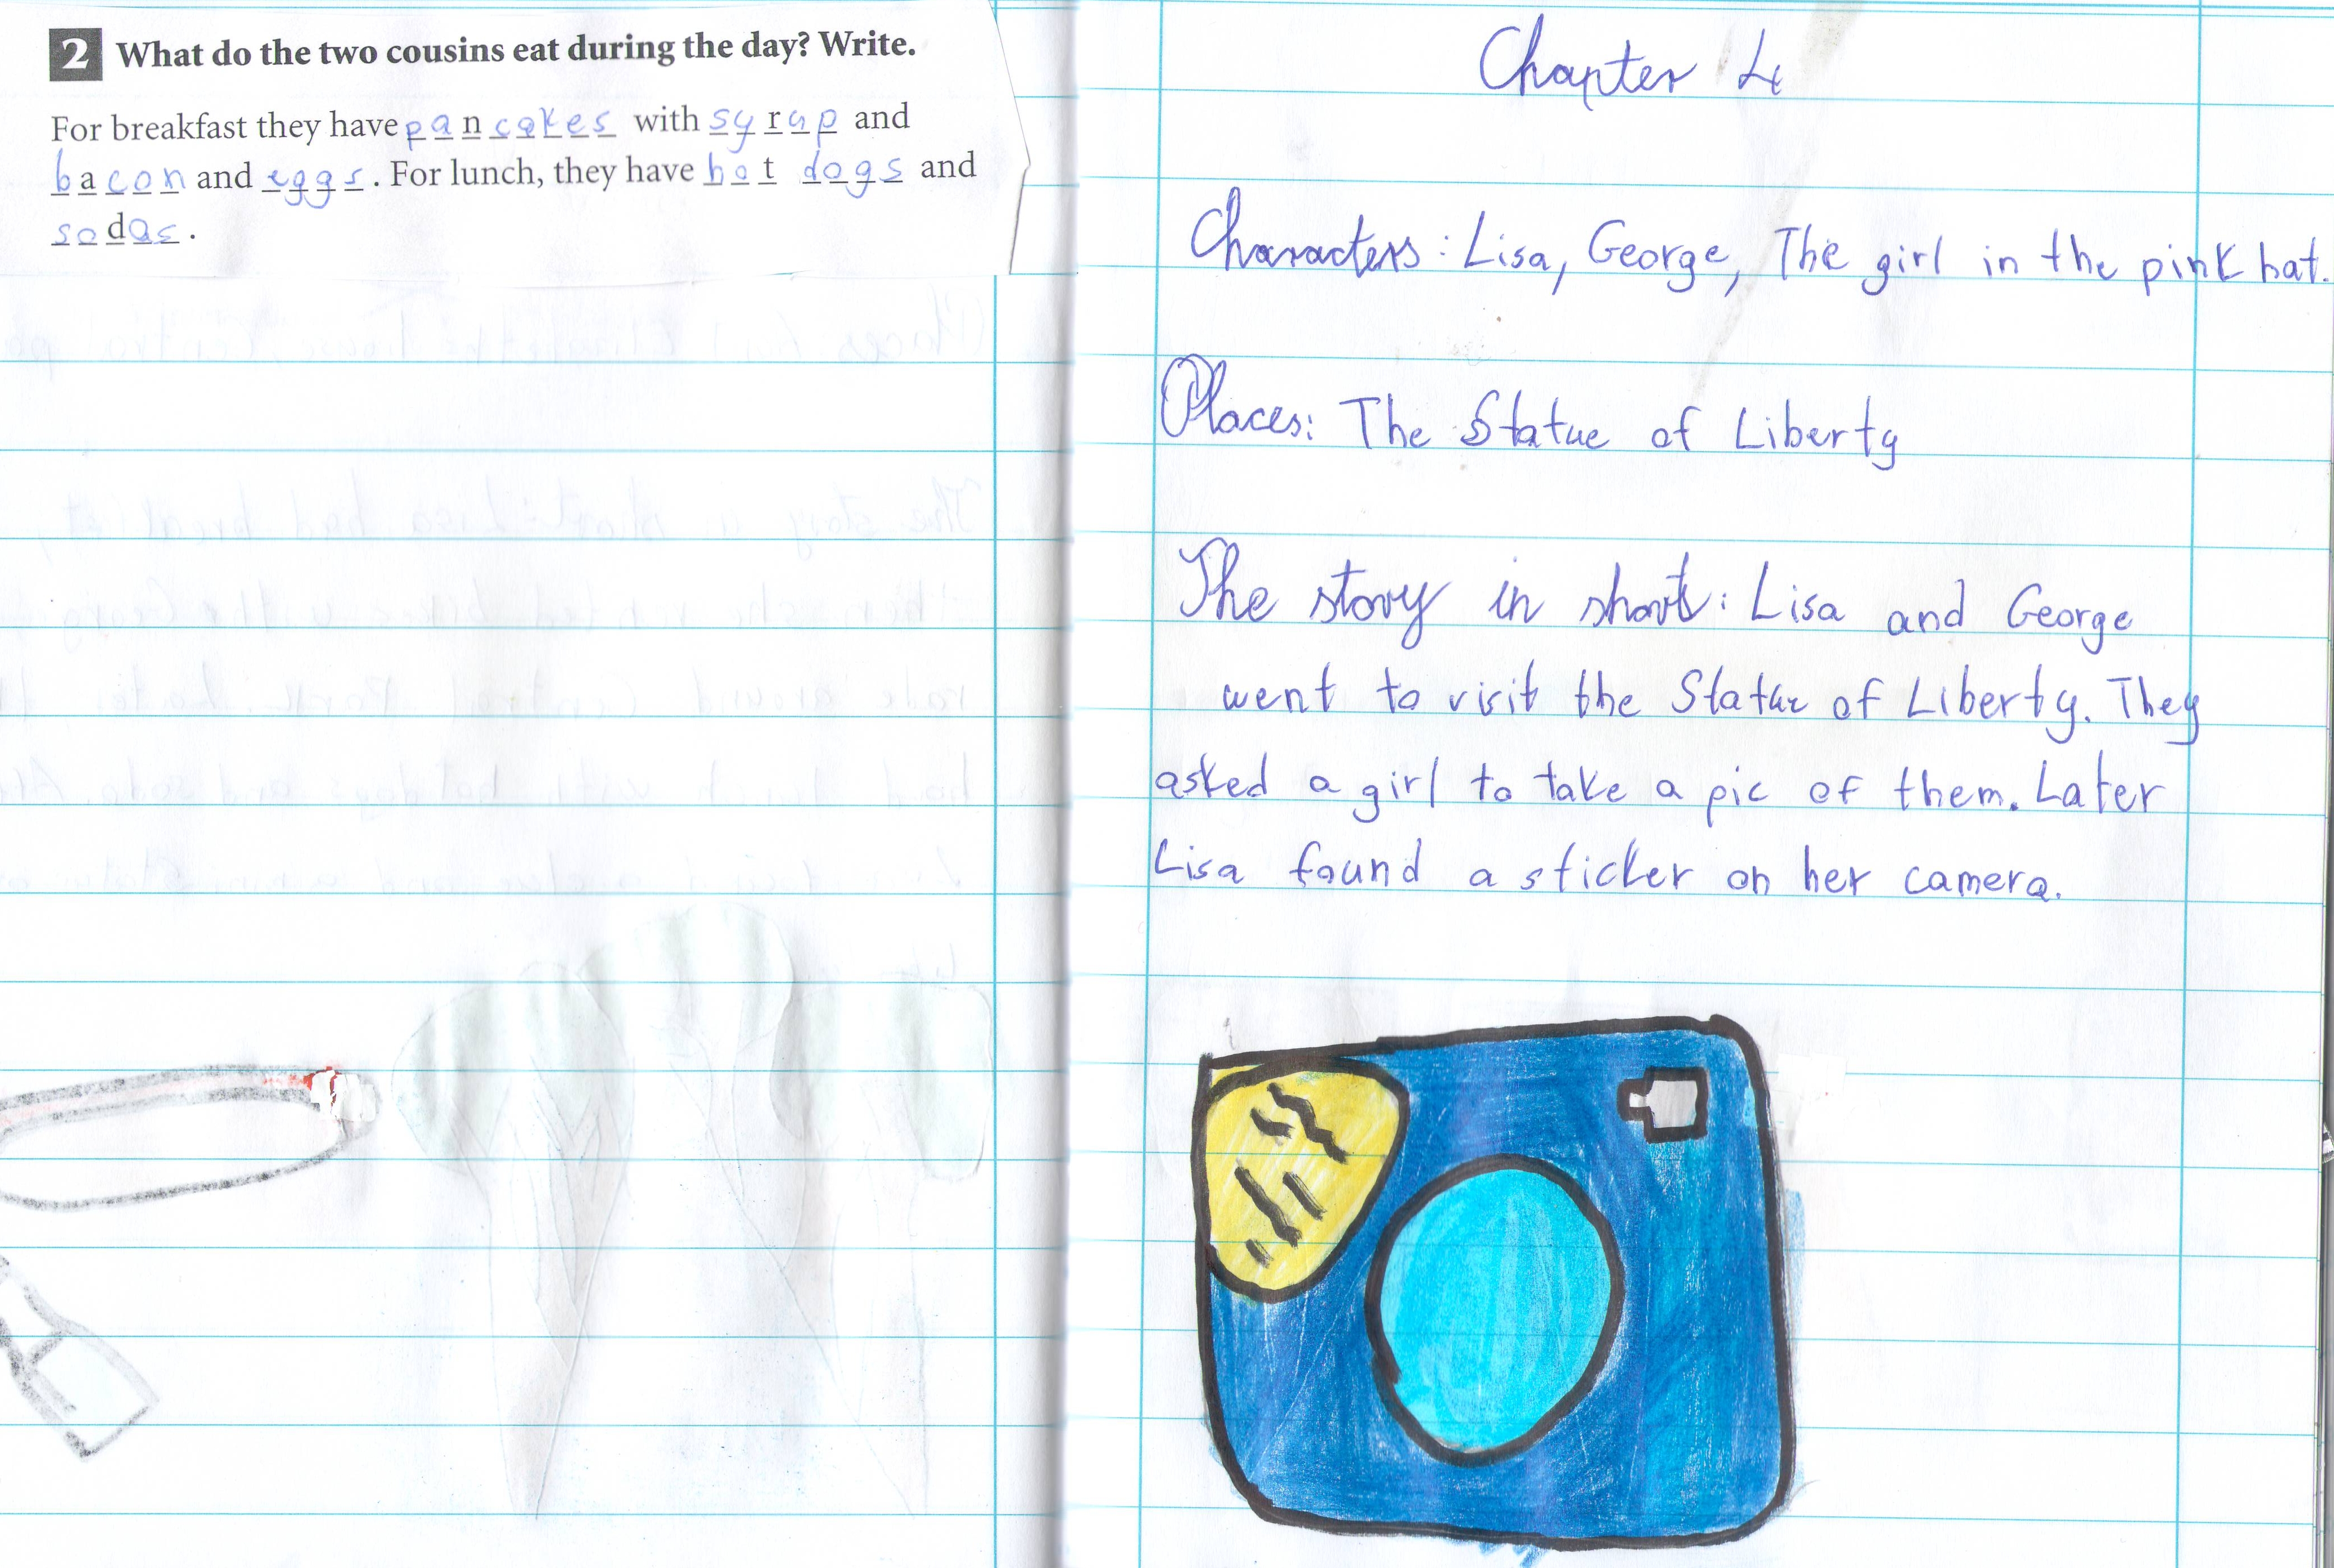 2 What do the two cousins eat during the day? Write.
For breakfast they have pancakes with syrup and
bacon and eggs. For lunch, they have hot dogs and
sodas.
Chapter 4
Characters: Lisa, George, The girl in the pink hat.
Places: The Statue of Liberty
The story in short: Lisa and George
went to visit the Statue of Liberty. They
asked a girl to take a pic of them. Later
Lisa found a sticker on her camera.